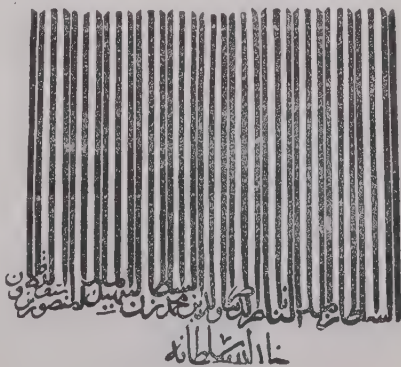 السلطان الملك الناصر ناصر الدنيا والدين محمد بن السلطان الشهيد الملك المنصور سيف الدين قلاوون
خلد الله سلطانه